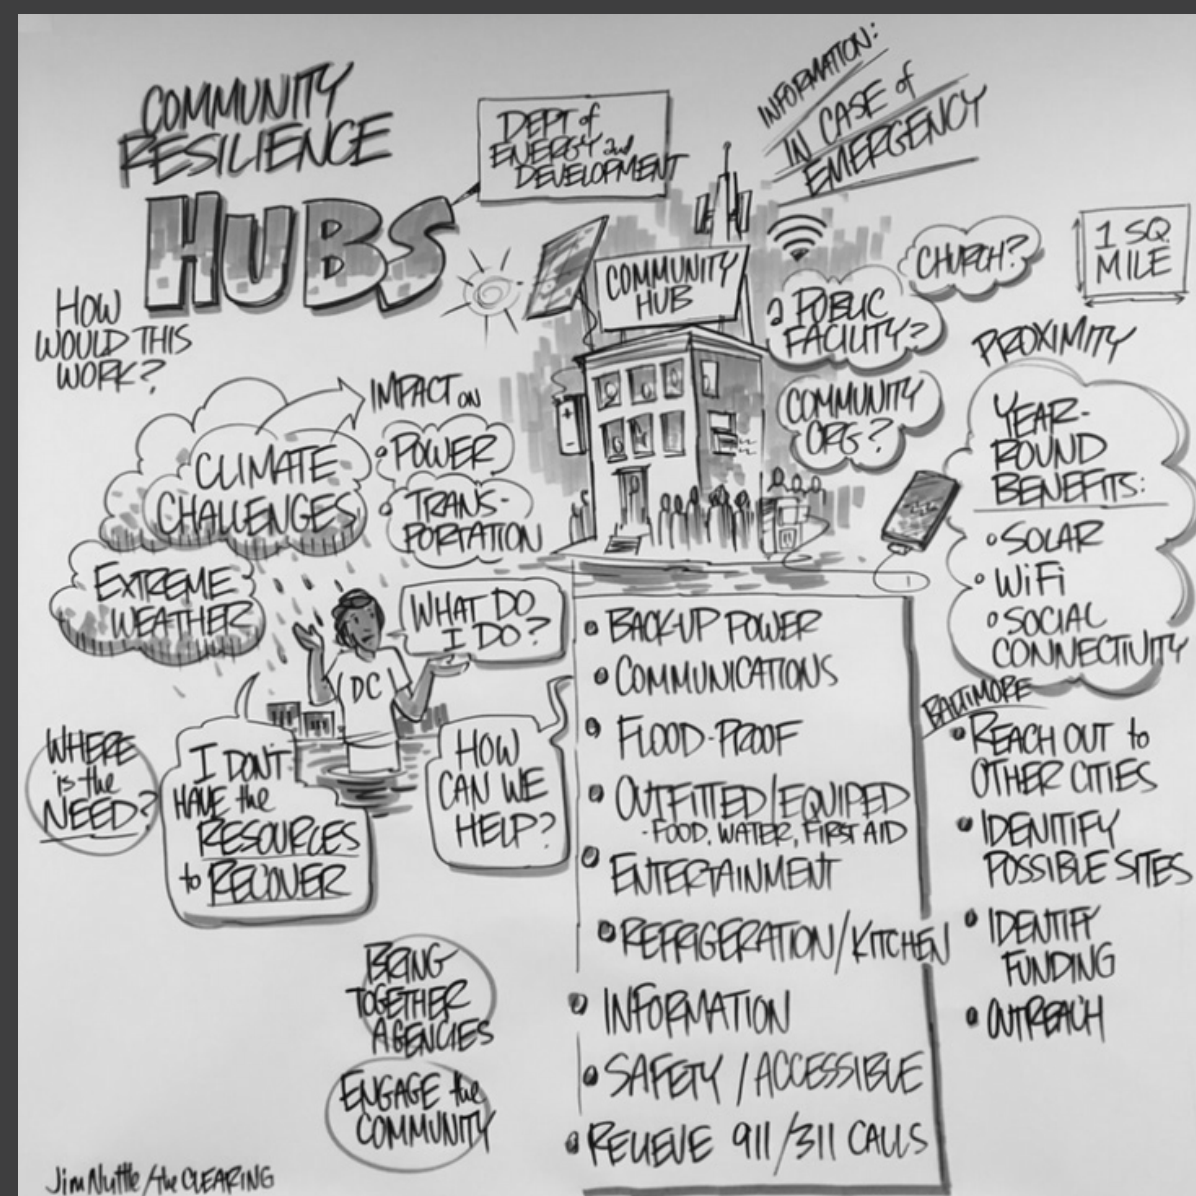 COMMUNITY
RESILIENCE
HUBS
DEPT of
ENERGY and
DEVELOPMENT
INFORMATION:
IN CASE of
EMERGENCY
HOW
WOULD THIS
WORK?
COMMUNITY
HUB
PUBLIC
FACILITY?
CHURCH?
COMMUNITY
ORG?
1 SQ
MILE
PROXIMITY
YEAR-
ROUND
BENEFITS:
SOLAR
WiFi
SOCIAL
CONNECTIVITY
CLIMATE
CHALLENGES
IMPACT ON
POWER
TRANS-
PORTATION
EXTREME
WEATHER
WHAT DO
I DO?
DC
WHERE
is the
NEED?
I DON'T
HAVE the
RESOURCES
to RECOVER
HOW
CAN WE
HELP?
BRING
TOGETHER
AGENCIES
ENGAGE the
COMMUNITY
BACK-UP POWER
COMMUNICATIONS
FLOOD-PROOF
OUTFITTED/EQUIPED
-FOOD, WATER, FIRST AID
ENTERTAINMENT
REFRIGERATION/KITCHEN
INFORMATION
SAFETY/ACCESSIBLE
RELIEVE 911/311 CALLS
BALTIMORE
REACH OUT to
OTHER CITIES
IDENITIFY
POSSIBLE SITES
IDENTIFY
FUNDING
OUTREACH
Jim Nuttle/the CLEARING